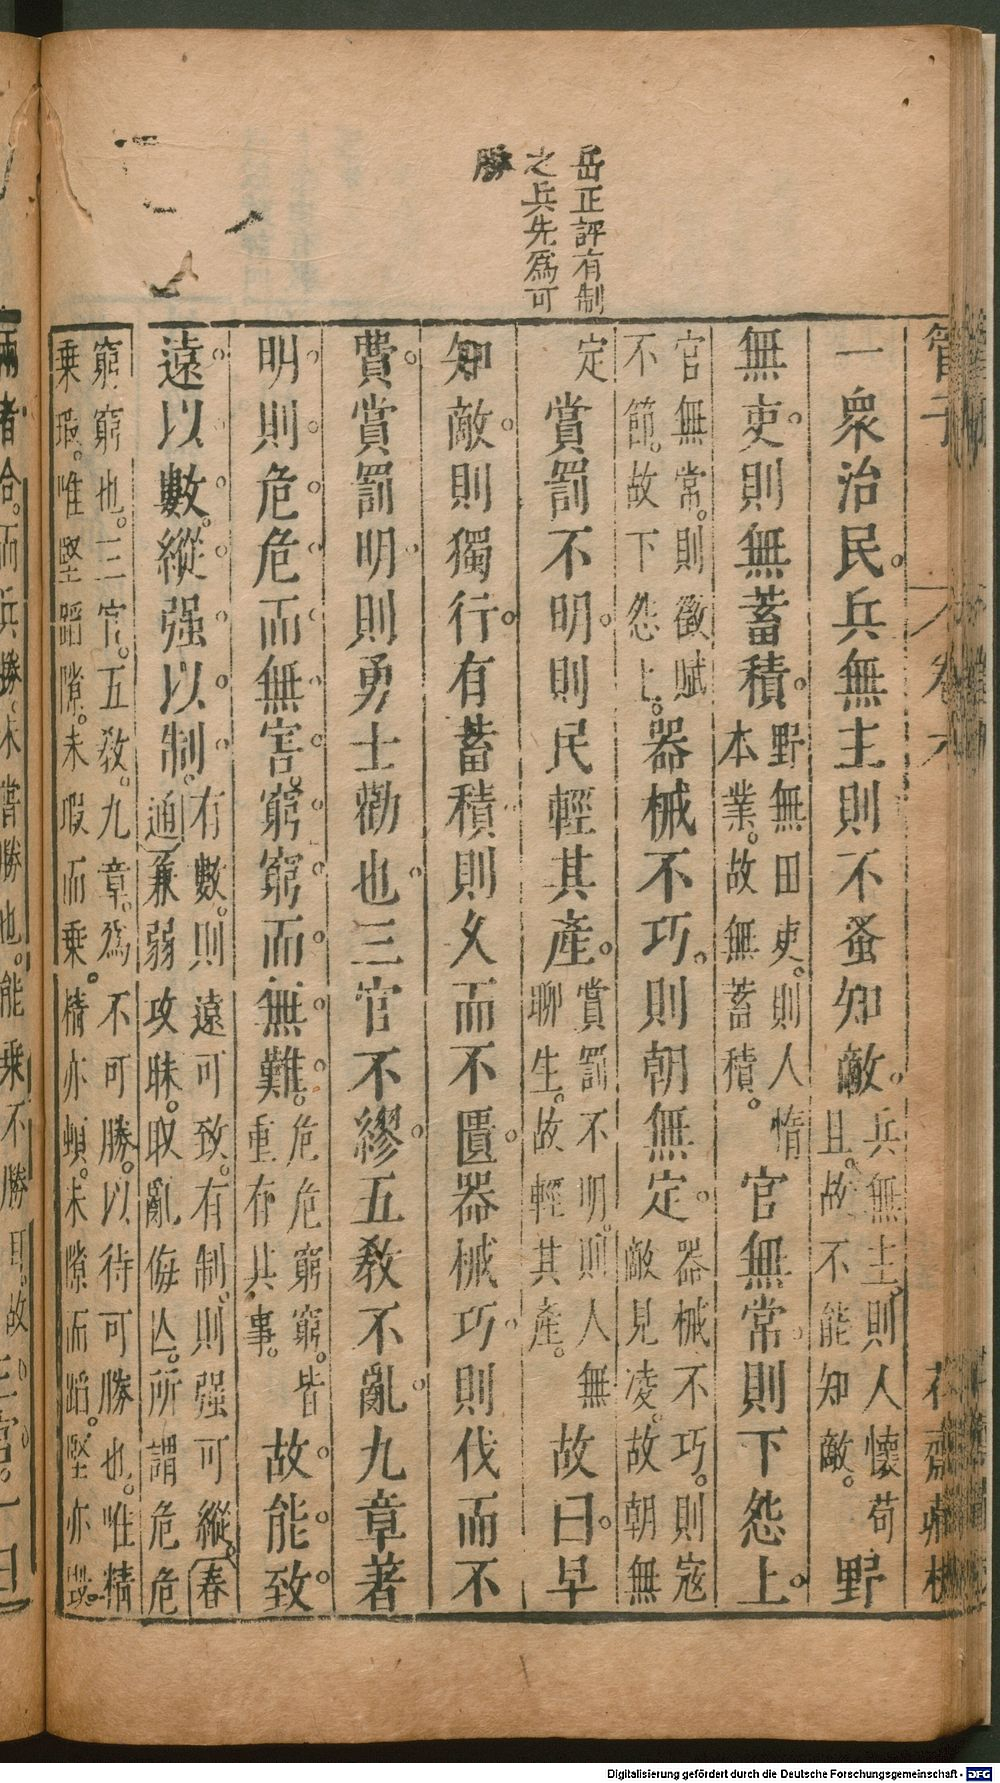 岳正評有制
之兵先爲可
勝
管子
卷六
一衆治民。兵無主則不蚤知敵。兵無主則人懷苟且。故不能知敵。野
無吏。則無蓄積。野無田吏。則人惰本業。故無蓄積。官無常。則下怨上。
官無常。則徵賦不節。故下怨上。器械不巧。則朝無定。器械不巧。則寇敵見凌。故朝無
定賞罰不明。則民輕其產。賞罰不明。則人無聊生。故輕其產。故曰。早
知敵。則獨行。有蓄積。則久而不匱。器械巧。則伐而不
費。賞罰明。則勇士勸也。三官不繆。五敎不亂。九章著
明。則危危而無害。窮窮而無難。危危窮窮。皆重存其事。故能致
遠以數。縱强以制。有數。則遠可致。有制。則强可縱。春通兼弱攻昧。取亂侮亡。所謂危危
窮窮也。三官。五敎。九章。爲不可勝。以待可勝也。唯精乗瑕。唯堅蹈隙。未瑕而乗。精亦頓。未隙而蹈。堅亦毀。
兩者合。而兵勝。未嘗勝也。能乗不勝耳。故三官。一曰
Digitalisierung gefördert durch die Deutsche Forschungsgemeinschaft - DFG